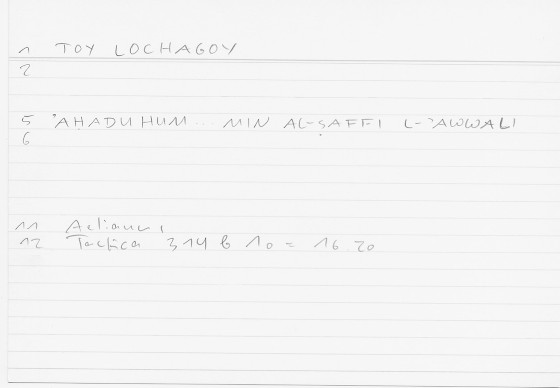 1 TOY LOCHAGOY
2
5 'AḤADUHUM ... MIN AL-ṢAFFI L-'AWWALI
6
11 Aeliani
12 Tactica 314 b 10 = 16 20